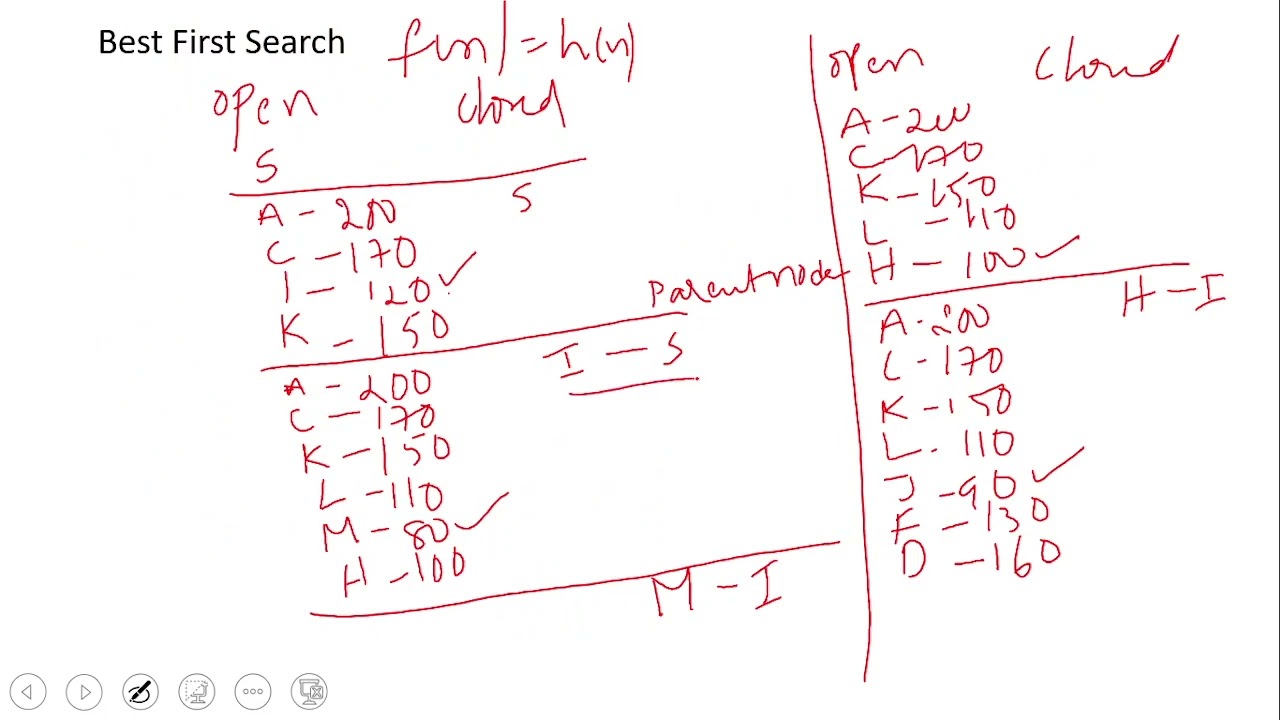 Best First Search
f(n) = h(n)
open closed
S
A - 200 S
C - 170
I - 120 ✓
K - 150
Parent node
I - S
A - 200
C - 170
K - 150
L - 110
M - 80 ✓
H - 100
M - I
open closed
A - 200
C - 170
K - 150
L - 110
H - 100 ✓
H - I
A - 200
C - 170
K - 150
L - 110
J - 90 ✓
F - 130
D - 160